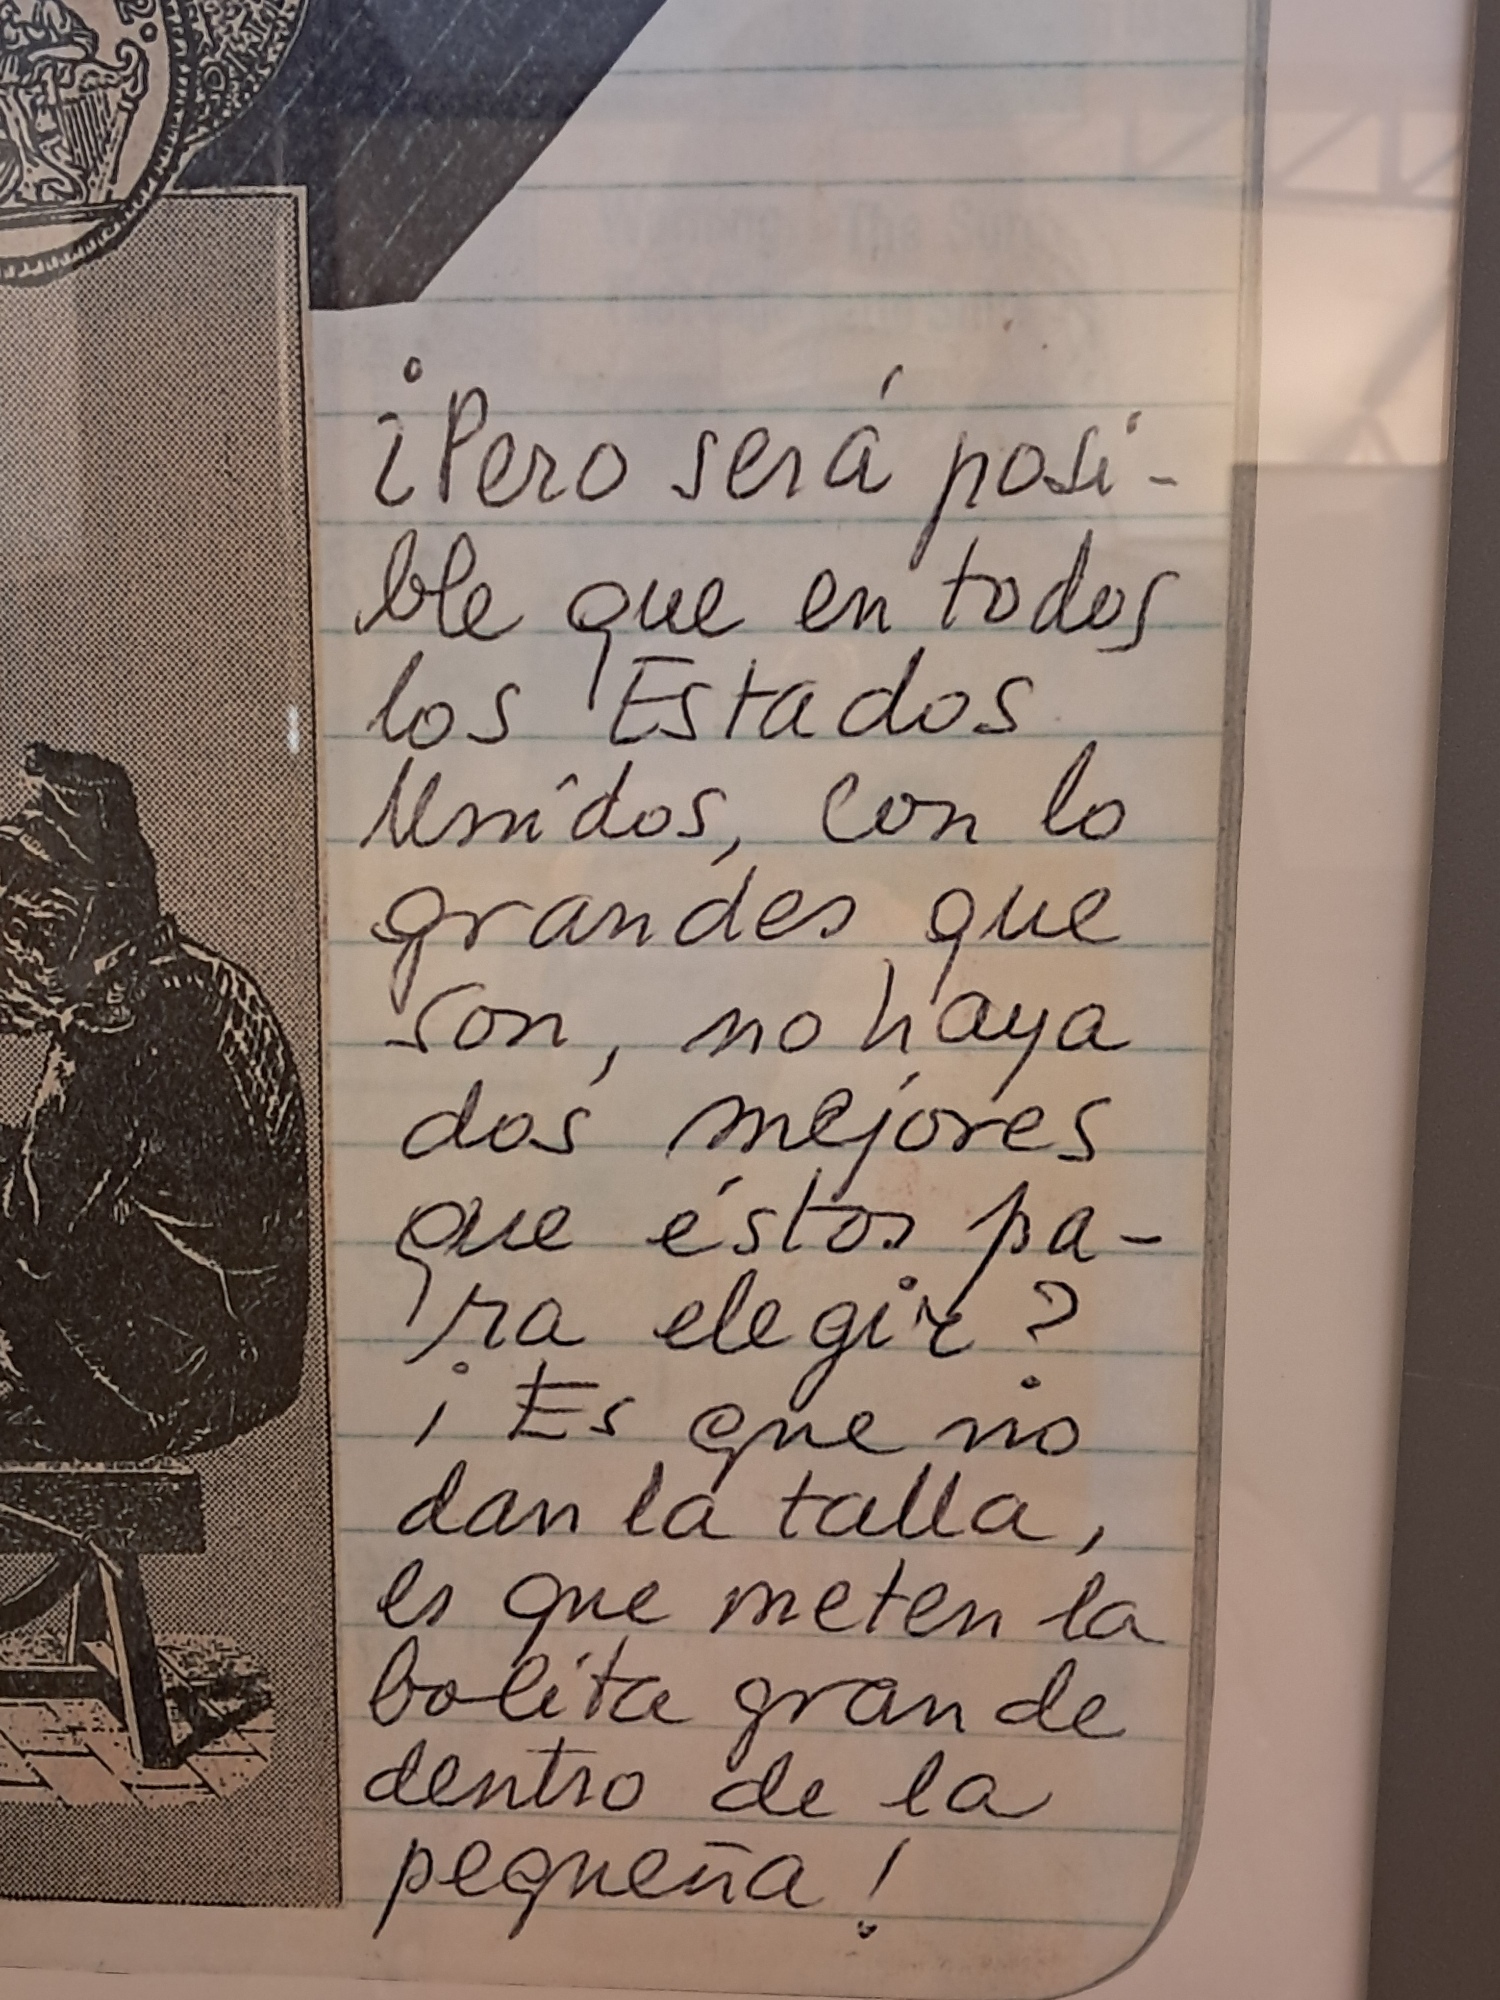 ¿Pero será posi-
ble que en todos
los Estados
Unidos, con lo
grandes que
son, no haya
dos mejores
que éstos pa-
ra elegir?
¡Es que no
dan la talla,
es que meten la
bolita grande
dentro de la
pequeña!